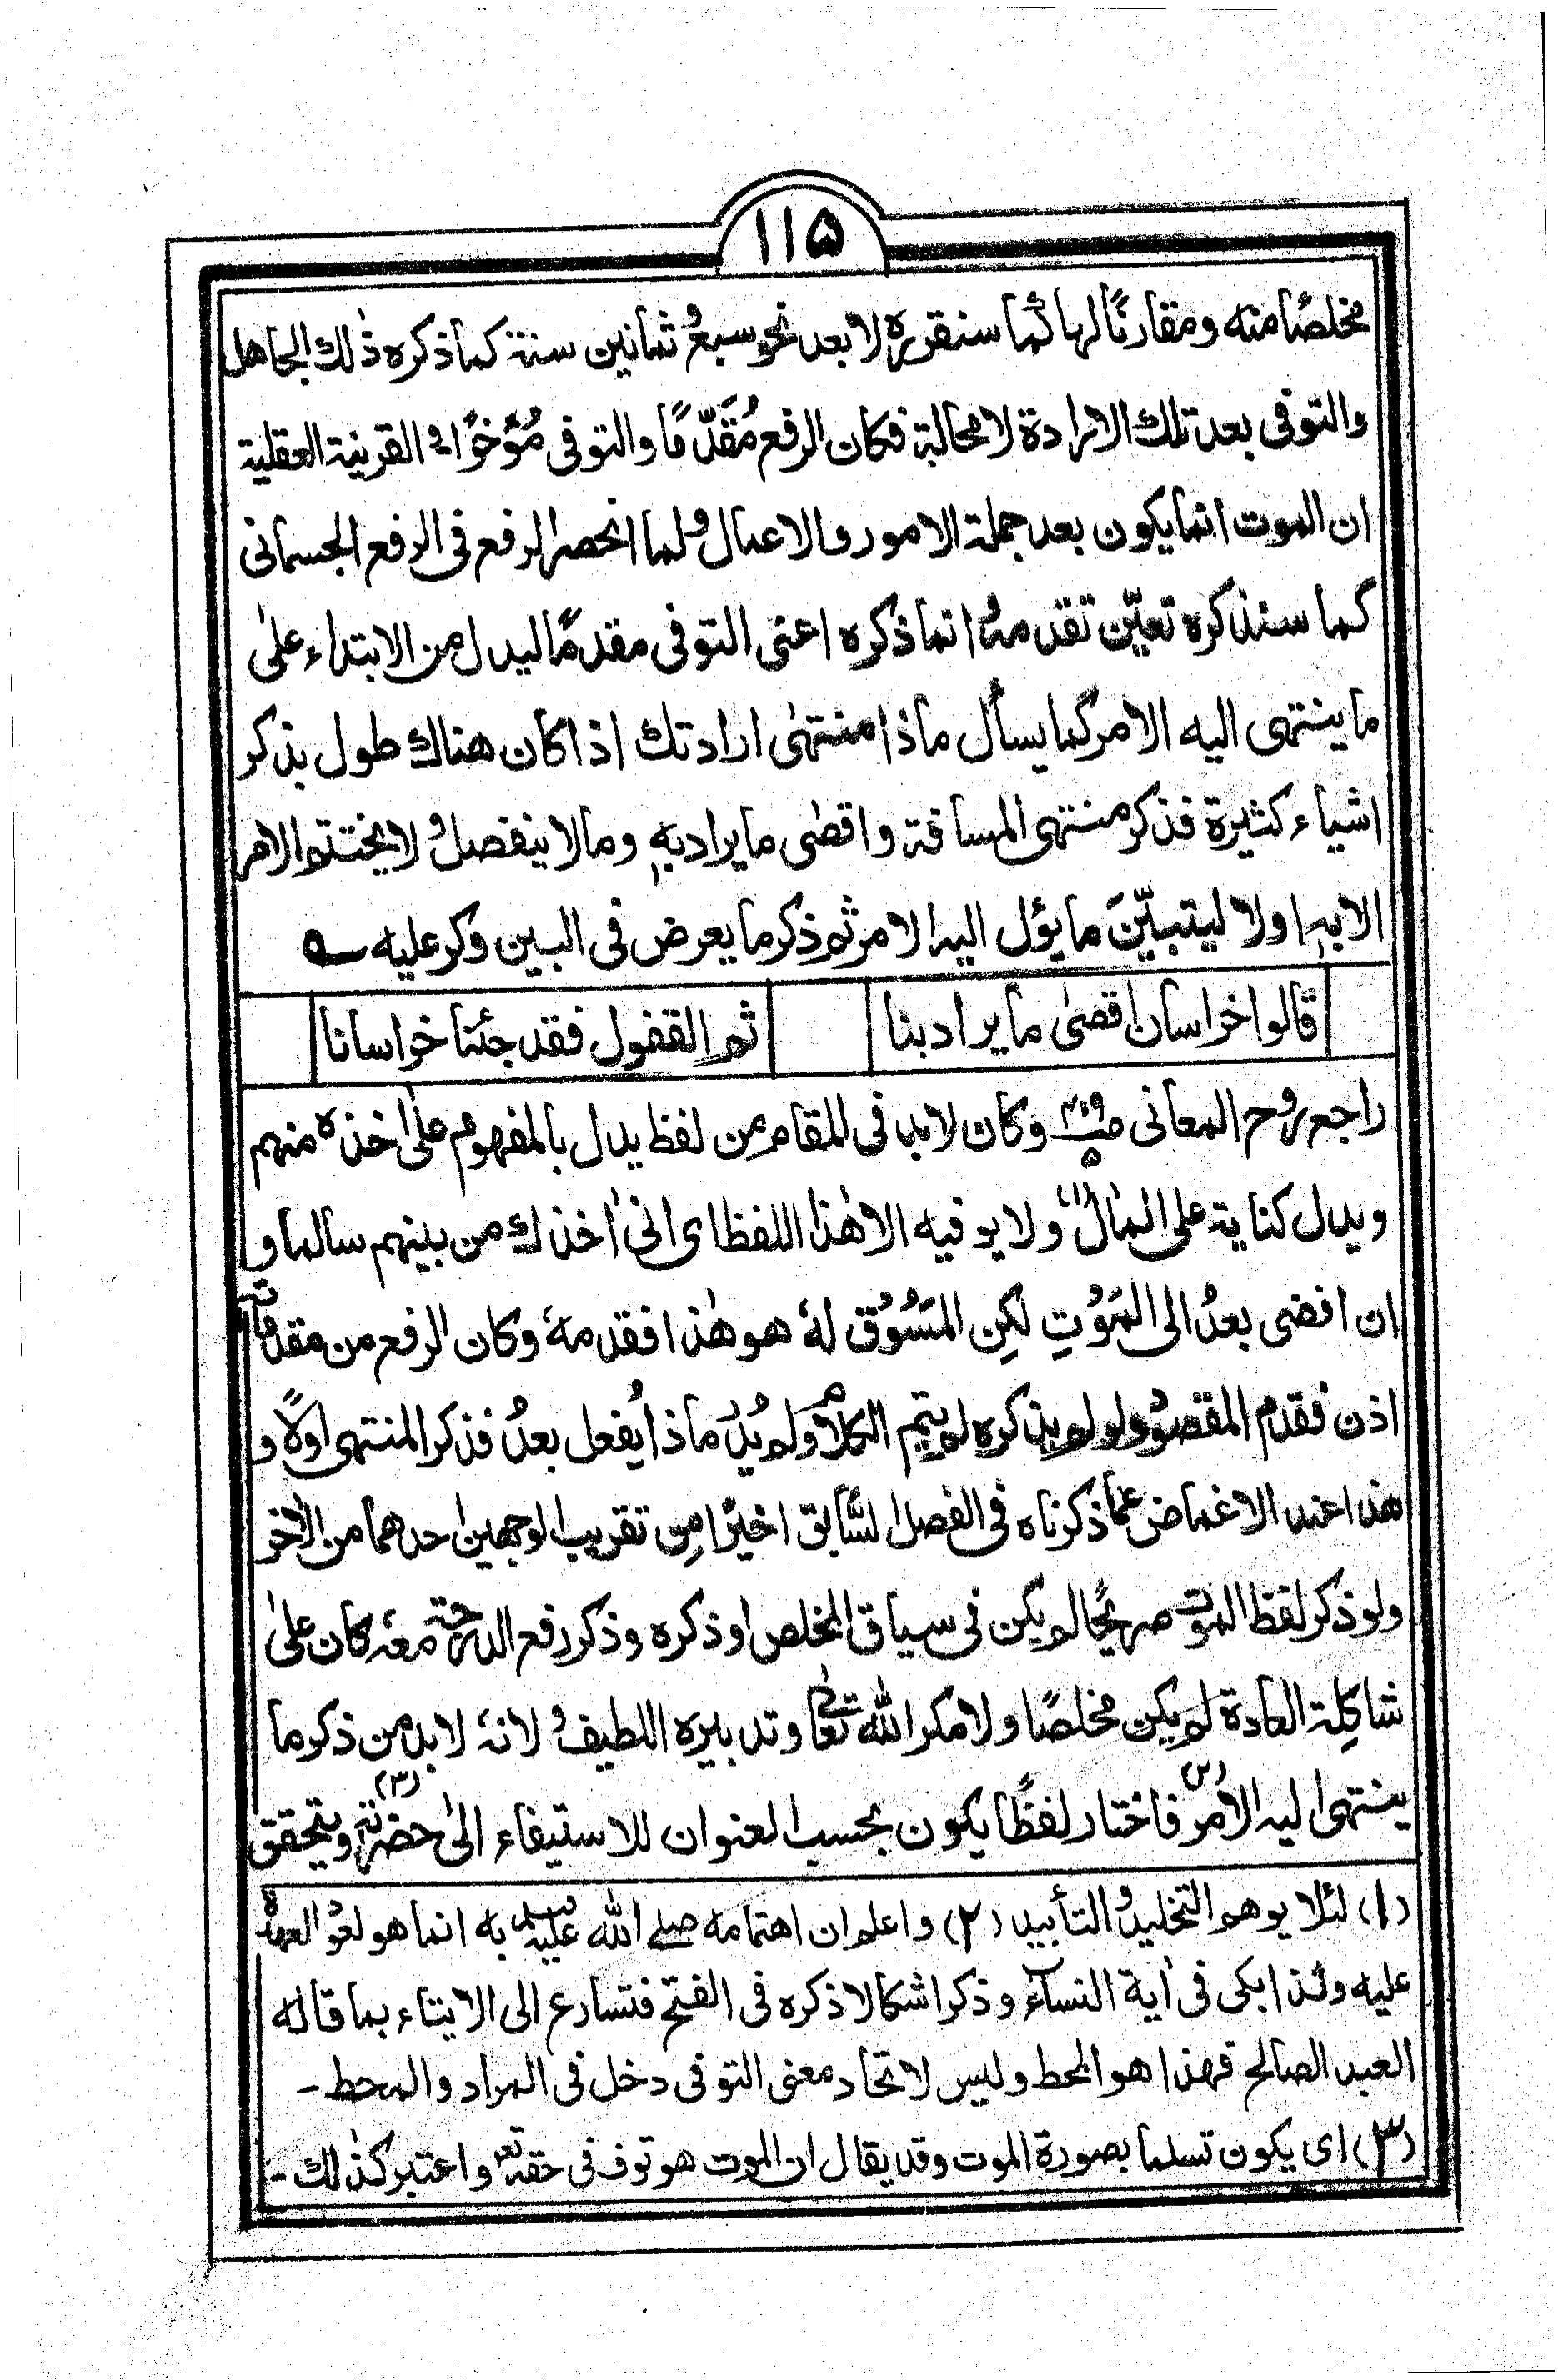 ۱۱۵
مخلصًا منه ومقارنًا لها كما سنقرره لا بعد نحو سبع وثمانين سنة كما ذكره ذٰلك الجاهل
والتوفى بعد تلك الارادة لا محالة فكان الرفع مُقَدّمًا والتوفى مُؤخرًا و القرينة العقلية
ان الموت انما يكون بعد جملة الامور والاعمال ولما انحصر الرفع فى الرفع الجسمانى
كما سنذكره تعيّن تقدمه وانما ذكره اعنى التوفى مقدمًا ليدل من الابتداء علىٰ
ما ينتهى اليه الامر كما يسأل ماذا منتهىٰ ارادتك اذا كان هناك طول بذكر
اشياء كثيرة فذكر منتهى المسافة واقصٰى ما يراد به وما لا ينفصل ولا يختتم الامر
الا به اولا ليتبيّنَ ما يؤل اليه الامر ثم ذكر ما يعرض فى البين وكر عليه ؎
قالوا خراسان اقصىٰ ما يراد بنا ثم القفول فقد جئنا خراسانا
راجع روح المعانى وكان لا بد فى المقام من لفظ يدل بالمفهوم علىٰ اخذه منهم
ويدل كناية على المآل (۱) ولا يوفيه الا هٰذا اللفظ اى انى اٰخذك من بينهم سالما و
ان افضى بعدُ الى المَوْتِ لكِن المَسُوُق لهٗ هو هٰذا فقدمهٗ وكان الرفع من مقدماته
اذن فقدم المقصود ولو لم يذكره لم يتم الكلام ولم يُدْرَ ماذا يُفعل بعدُ فذكر المنتهى اولًا و
هٰذا عند الاغماض عما ذكرناه فى الفصل السَّابق اخيرًا مِن تقريب الوجهين احدهما من الاٰخر
ولو ذكر لفظ الموت صريحًا لم يكن فى سياق المخلص او ذكره وذكر رفع الدرجة معهٗ كان علىٰ
شاكِلة العادة لم يكن مخلصًا ولا مكر الله تعالىٰ وتدبيره اللطيف ولانهٗ لا بد من ذكر ما
ينتهى اليه الامر (۲) فاختار لفظًا يكون بحسب العنوان للاستيفاء الىٰ حضرته (۳) ويتحقق
(۱) لئلا يوهم التخليد والتأبيد (۲) واعلم ان اهتمامه صلے الله عليه وسلم به انما هو لعَوْد العهدة
عليه ولذا بكى فى اٰية النسآء وذكر اشكالا ذكره فى الفتح فتسارع الى الايتاء بما قاله
العبد الصالح فهٰذا هو المحط وليس لاتحاد معنى التوفى دخل فى المراد والمحط ـ
(۳) اى يكون تسلما بصورة الموت وقد يقال ان الموت هو توف فى حقه تع واعتبر كذٰلك ـ